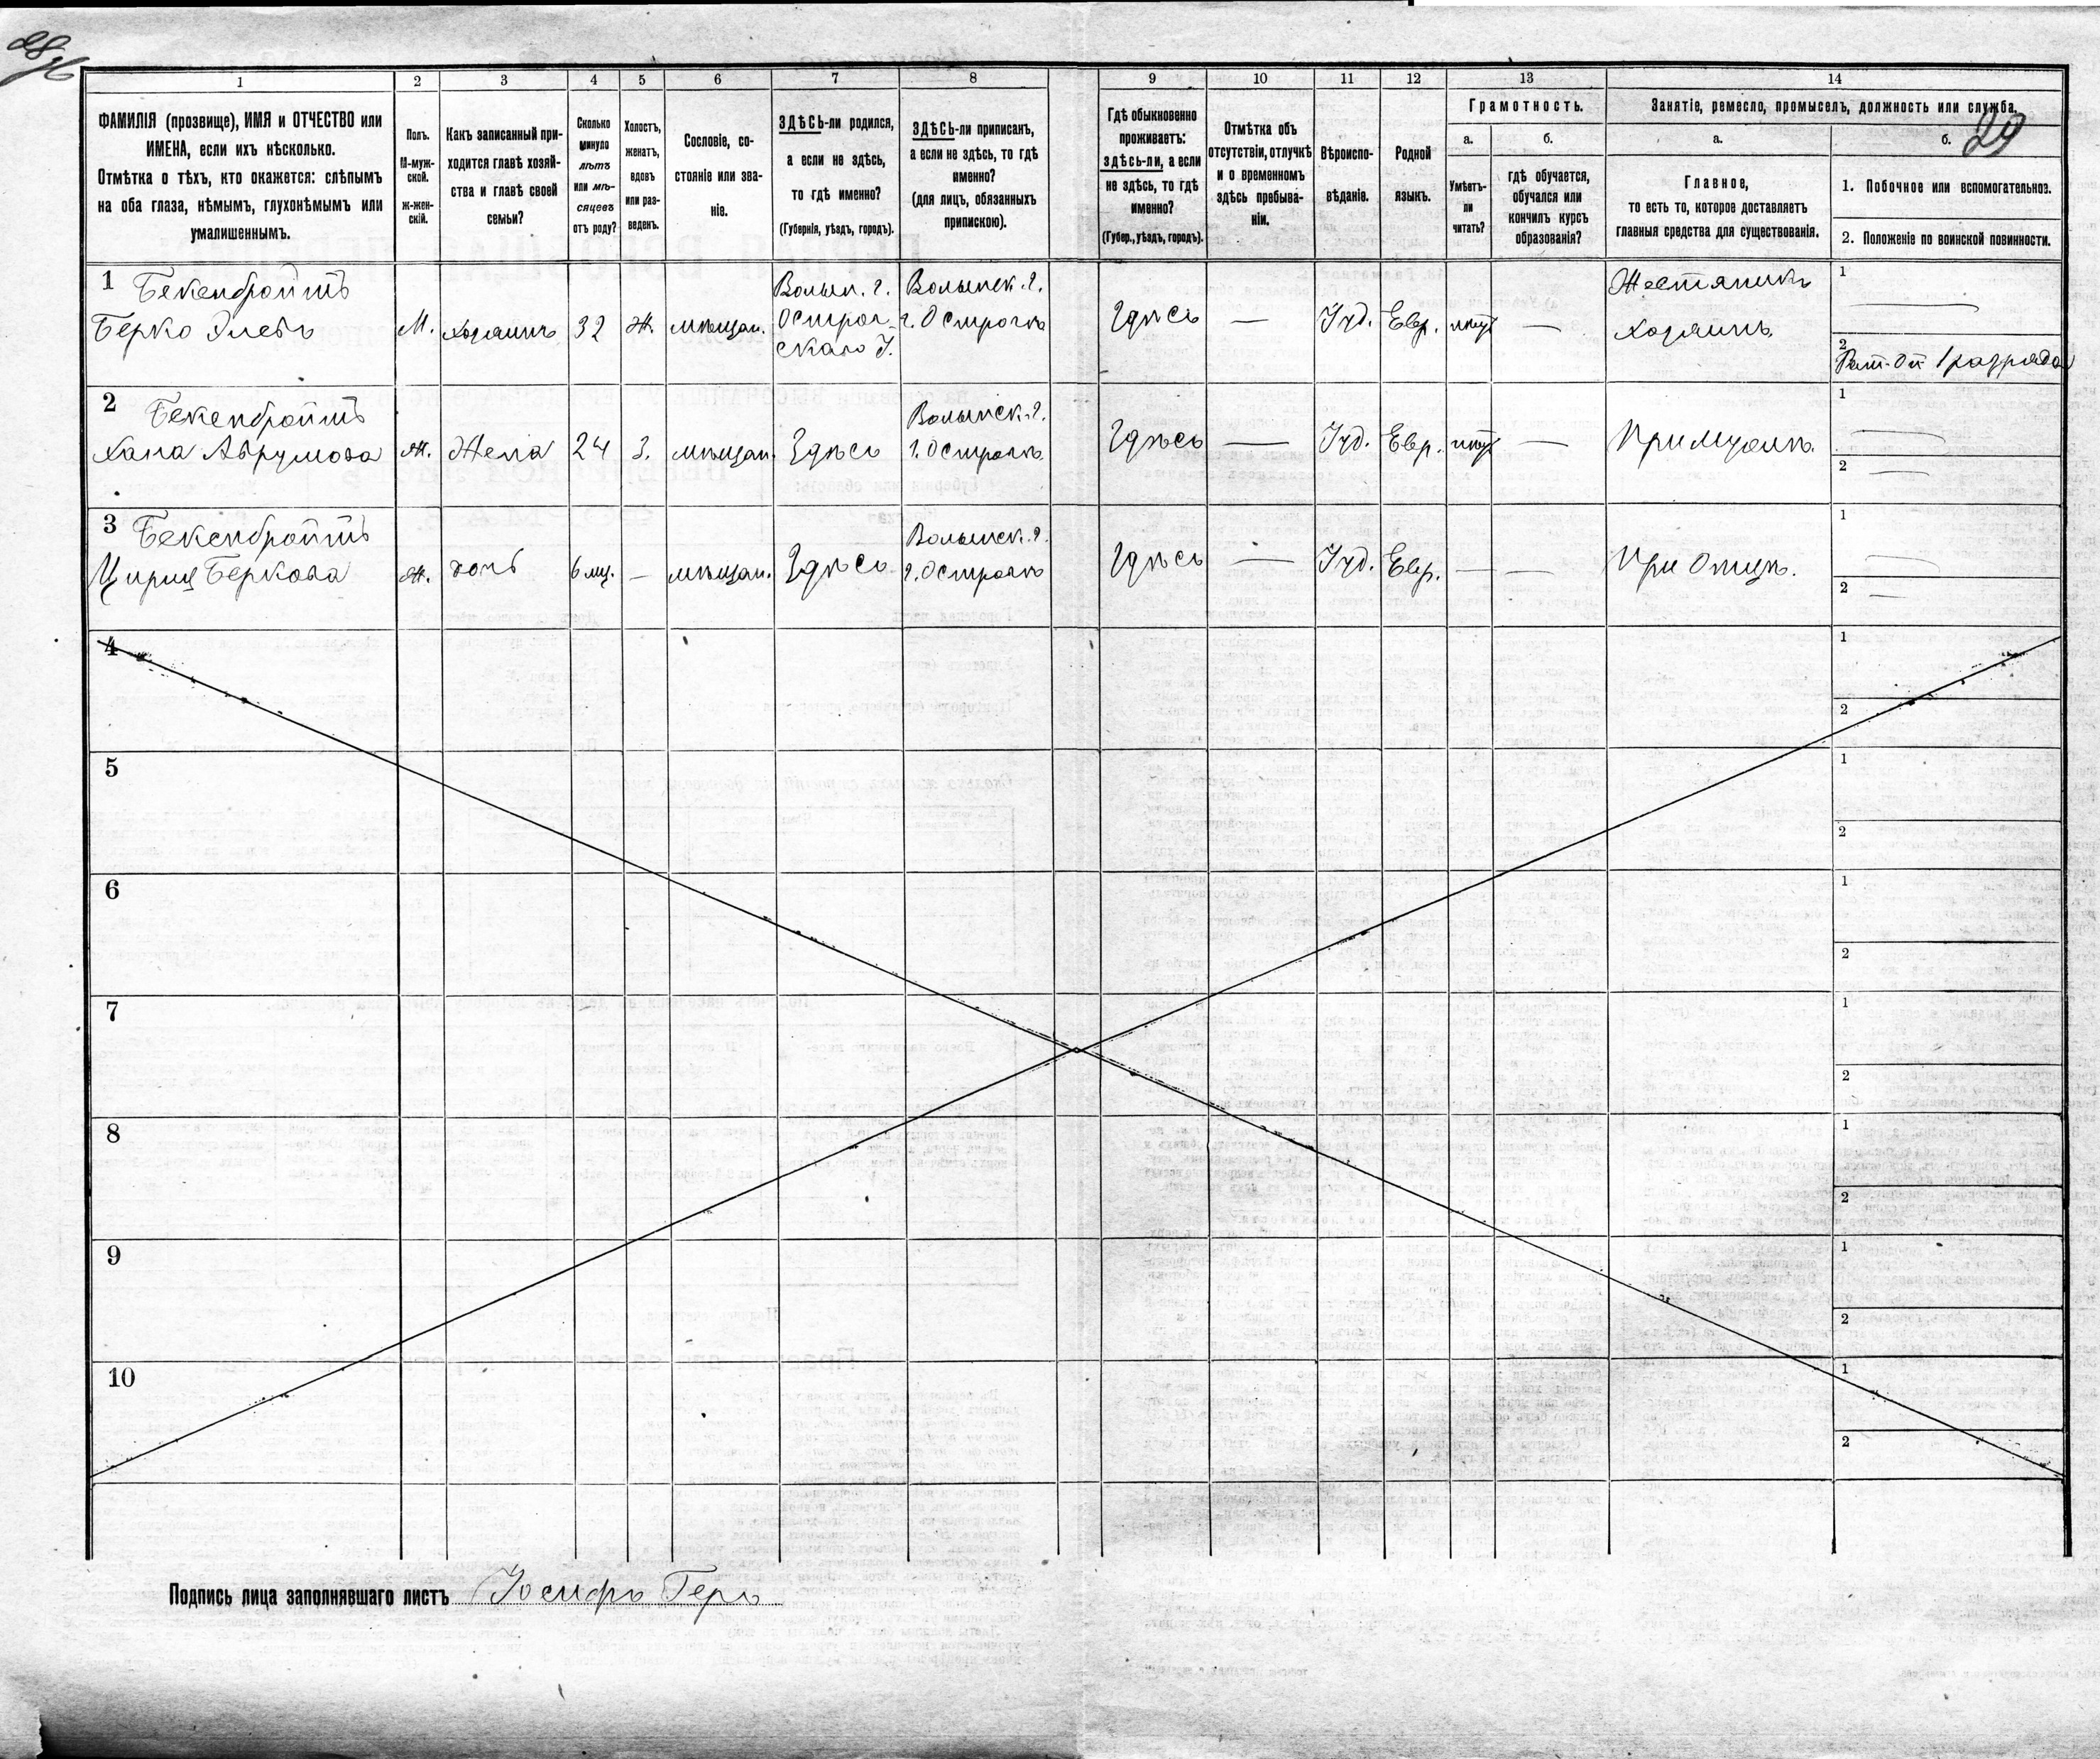 28 об
29
1 2 3 4 5 6 7 8 9 10 11 12 13 14
ФАМИЛІЯ (прозвище), ИМЯ и ОТЧЕСТВО или
ИМЕНА, если ихъ нѣсколько.
Отмѣтка о тѣхъ, кто окажется: слѣпымъ
на оба глаза, нѣмымъ, глухонѣмымъ или
умалишеннымъ.
Полъ.
М-муж-
ской.
ж-жен-
скій.
Какъ записанный при-
ходится главѣ хозяй-
ства и главѣ своей
семьи?
Сколько
минуло
лѣтъ
или мѣ-
сяцевъ
отъ роду?
Холостъ,
женатъ,
вдовъ
или раз-
веденъ.
Сословіе, со-
стояніе или зва-
ніе.
ЗДѢСЬ-ли родился,
а если не здѣсь,
то гдѣ именно?
(Губернія, уѣздъ, городъ).
ЗДѢСЬ-ли приписанъ,
а если не здѣсь, то гдѣ
именно?
(для лицъ, обязанныхъ
припискою).
Гдѣ обыкновенно
проживаетъ:
здѣсь-ли, а если
не здѣсь, то гдѣ
именно?
(Губер., уѣздъ, городъ).
Отмѣтка объ
отсутствіи, отлучкѣ
и о временномъ
здѣсь пребыва-
ніи.
Вѣроиспо-
вѣданіе.
Родной
языкъ.
Грамотность.
а.
Умѣетъ-
ли
читать?
б.
гдѣ обучается,
обучался или
кончилъ курсъ
образованія?
Занятіе, ремесло, промыселъ, должность или служба.
а.
Главное,
то есть то, которое доставляетъ
главныя средства для существованія.
б.
1. Побочное или вспомогательное.
2. Положеніе по воинской повинности.
1 Бекенбройтъ
Берко
М.
хозяинъ
32
Ж.
мѣщан.
Волын. г.
Острог-
скаго У.
Волынск. г.
г. Острогъ
Здѣсь
—
Іуд.
Евр.
—
Жестяникъ
хозяинъ
1 —
2 Рат. Оп 1 разряда
2 Бекенбройтъ
Хана Абрумова
Ж.
Жена
24
З.
мѣщан.
Здѣсь
Волынск. г.
г. Острогъ
Здѣсь
—
Іуд.
Евр.
—
При мужѣ.
1 —
2 —
3 Бекенбройтъ
Берковa
Ж.
дочь
6 мц.
—
мѣщан.
Здѣсь
Волынск. г.
г. Острогъ
Здѣсь
—
Іуд.
Евр.
—
—
При Отцѣ.
1 —
2 —
4 1
2
5 1
2
6 1
2
7 1
2
8 1
2
9 1
2
10 1
2
Подпись лица заполнявшаго листъ Іосифъ Геръ